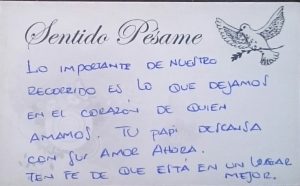 Sentido Pésame
LO IMPORTANTE DE NUESTRO
RECORRIDO ES LO QUE DEJAMOS
EN EL CORAZÓN DE QUIEN
AMAMOS. TU PAPI DESCANSA
CON SU AMOR AHORA.
TEN FE DE QUE ESTÁ EN UN LUGAR
MEJOR.